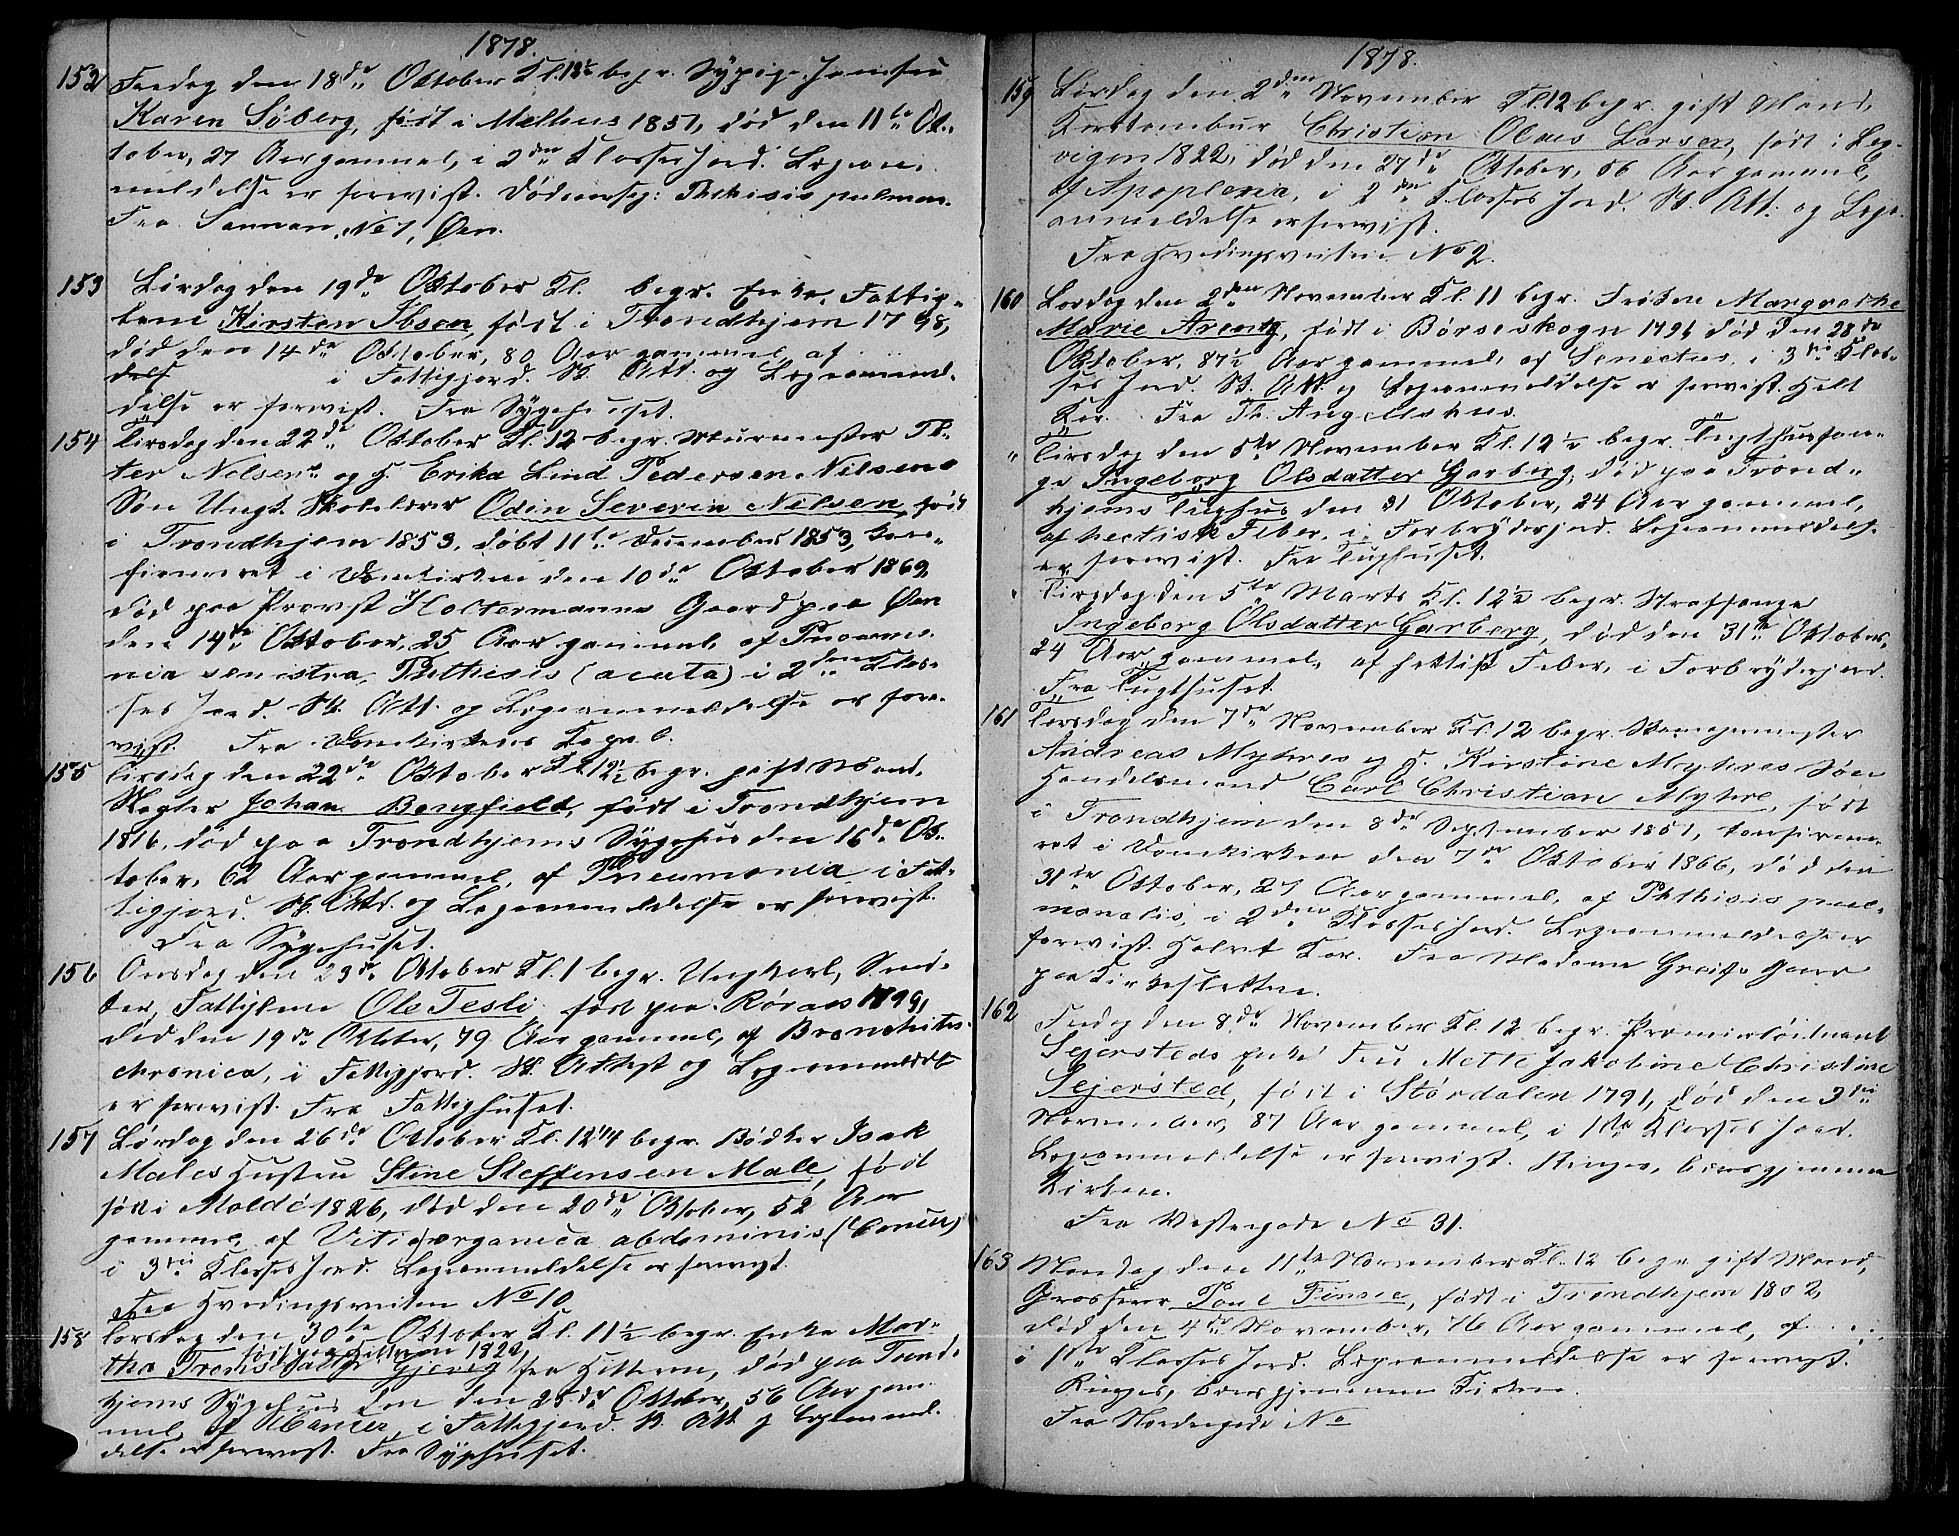 1878.
152 Fredag den 18de Oktober Kl. 12½ begr. Sypige, Jomfru
Karen Söberg, født i Melhus 1851, død den 11te Ok-
tober, 27 Aar gammel, i 2den Klasses Jord. Lægean-
meldelse er forevist. Dødsaarsag: Phthisis pulmon.
Fra Sannan, No 1, Øen.
153 Lördag den 19de Oktober Kl. begr. Enke, Fattig-
lem Kirsten Ibsen, født i Trondhjem 1798,
død den 14de Oktober, 80 Aar gammel, af
delse i Fattigjord. Sk. Att. og Lægeanmel-
delse er forevist. Fra Sygehuset.
154 Tirsdag den 22de Oktober Kl. 12 begr. Murmester Pe-
ter Nelsen og H. Erika Lind Pedersen Nilsens
Søn Ungk. Skolelærer Odin Severin Nilsen, født
i Trondhjem 1853, døbt 11te December 1853, kon-
firmeret i Domkirken den 10de Oktober 1869,
død paa Provst Holtermanns Gaard paa Øen
den 14de Oktober, 25 Aar gammel, af Pneumo-
nia senistra, Phthisis (acuta) i 2den Klas-
ses Jord. Sk. Att. og Lægeanmeldelse er fore-
vist. Fra Domkirkens Kapel.
155 Tirsdag den 22de Oktober Kl. 12½ begr. gift Mand,
Slagter Johan Bengfield, født i Trondhjem
1816, død paa Trondhjems Sygehus den 16de Ok-
tober, 62 Aar gammel, af Pneumonia i Fat-
tigjord. Sk. Att. og Lægeanmeldelse er forevist.
Fra Sygehuset.
156 Onsdag den 23de Oktober Kl. 1 begr. Ungkarl, Sned-
ker, Fattiglem Ole Tesli, født paa Röraas 1799,
død den 19de Oktober, 79 Aar gammel, af Bronchitis
chronica, i Fattigjord. Sk. Attest og Lægeanmeldelse
er forevist. Fra Fattighuset.
157 Lördag den 26de Oktober Kl. 12¼ begr. Bødker Isak
Males Hustru Stine Steffensen Male, født
født i Molde 1826, død den 20de Oktober, 52 Aar
gammel, af Vitia organica abdominis (Cancer)
i 3die Klasses Jord. Lægeanmeldelse er forevist.
Fra Hvedingsveiten No 10
158 Torsdag den 30te Oktober Kl. 11½ begr. Enke Mar-
født paa Hitteren 1822,
tha Gjevig fra Hitteren, død paa Trond-
hjems Sygehus den den 25de Oktober, 56 Aar gam-
mel, af Cancer, i Fattigjord. Sk. Att. og Lægeanmel-
delse er forevist. Fra Sygehuset.
1878.
159 Lördag den 2den November Kl. 12 begr. gift Mand,
Christian Olaus Larsen, født i Lex-
vigen 1822, død den 27de Oktober, 56 Aar gammel,
af Apoplexia, i 2den Klasses Jord. Sk. Att. og Læge-
anmeldelse er forevist.
Fra Hvedingsveiten No 2.
160 Lördag den 2den November Kl. 11 begr. Frøken Margrethe
Marie Arentz, født i Börseskogn 1791, død den 28de
Oktober, 87½ Aar gammel, af Senectus, i 3die Klas-
ses Jord. Sk. Att. og Lægeanmeldelse er forevist. Helt
Kor. Fra Th. Ang.
" Tirsdag den 5te November Kl. 12½ begr. Tugthusfan-
ge Ingeborg Olsdatter Garberg, død paa Trond-
hjems Tugthus den 31 Oktober, 24 Aar gammel,
af hectisk Feber, i Forbryderjord. Lægeanmeldelse
er forevist. Fra Tugthuset.
" Tirsdag den 5te Marts Kl. 12½ begr. Straffange
Ingeborg Olsdatter Garberg, død den 31te Oktober,
24 Aar gammel, af hektisk Feber, i Forbryderjord.
Fra Tugthuset.
161 Torsdag den 7de November Kl. 12 begr.
Andreas Myhres og H. Kirstine Myhres Søn
Handelsmand Carl Christian Myhre, født
i Trondhjem den 8de September 1851, konfirme-
ret i Domkirken den 7de Oktober 1866, død den
31te Oktober, 27 Aar gammel, af Phthisis pul-
monalis, i 2den Klasses Jord. Lægeanmeldelse er
forevist. Halvt Kor. Fra Madame Gaard
paa Kirkesletten.
162 Fredag den 8de November Kl. 12 begr. Premierløitnant
Sejersteds Enke Fru Mette Jakobine Christine
Sejersted, født i Størdalen 1791, død den 3die
November, 87 Aar gammel, i 1ste Klasses Jord.
Lægeanmeldelse er forevist. Ringes, bæres gjennem
Kirken.
Fra Vestergade No 31.
163 Mandag den 11te November Kl. 12 begr. gift Mand,
Grosserer Poul Finne, født i Trondhjem 1802,
død den 4de November, 76 Aar gammel, af
i 1ste Klasses Jord. Lægeanmeldelse er forevist.
Ringes, bæres gjennem Kirken.
Fra Nordregade No